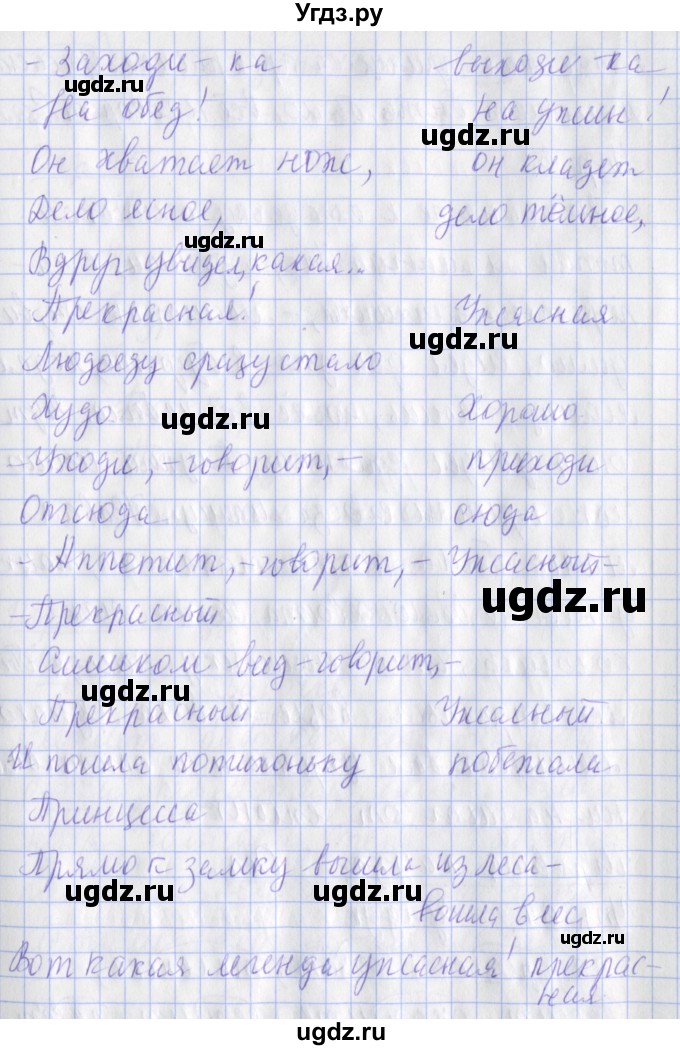 Угдз.ру
- Заходи - ка выходи - ка
На обед! На ужин!
ugdz.ru
Он хватает нож, он кладет
Дело ясное, дело тёмное,
ugdz.ru
Вдруг увидел, какая...
Прекрасная! Ужасная
ugdz.ru
Людоеду сразу стало
Худо Хорошо
ugdz.ru
- Уходи, - говорит, - приходи
Отсюда сюда
- Аппетит, - говорит, - Ужасный -
ugdz.ru
- Прекрасный
Слишком вид - говорит, -
ugdz.ru
Прекрасный Ужасный
И пошла потихоньку побежала
Принцесса
Прямо к замку вышла из леса -
ugdz.ru ugdz.ru
вошла в лес
ugdz.ru
Вот какая легенда ужасная! прекрас-
ная
ugdz.ru